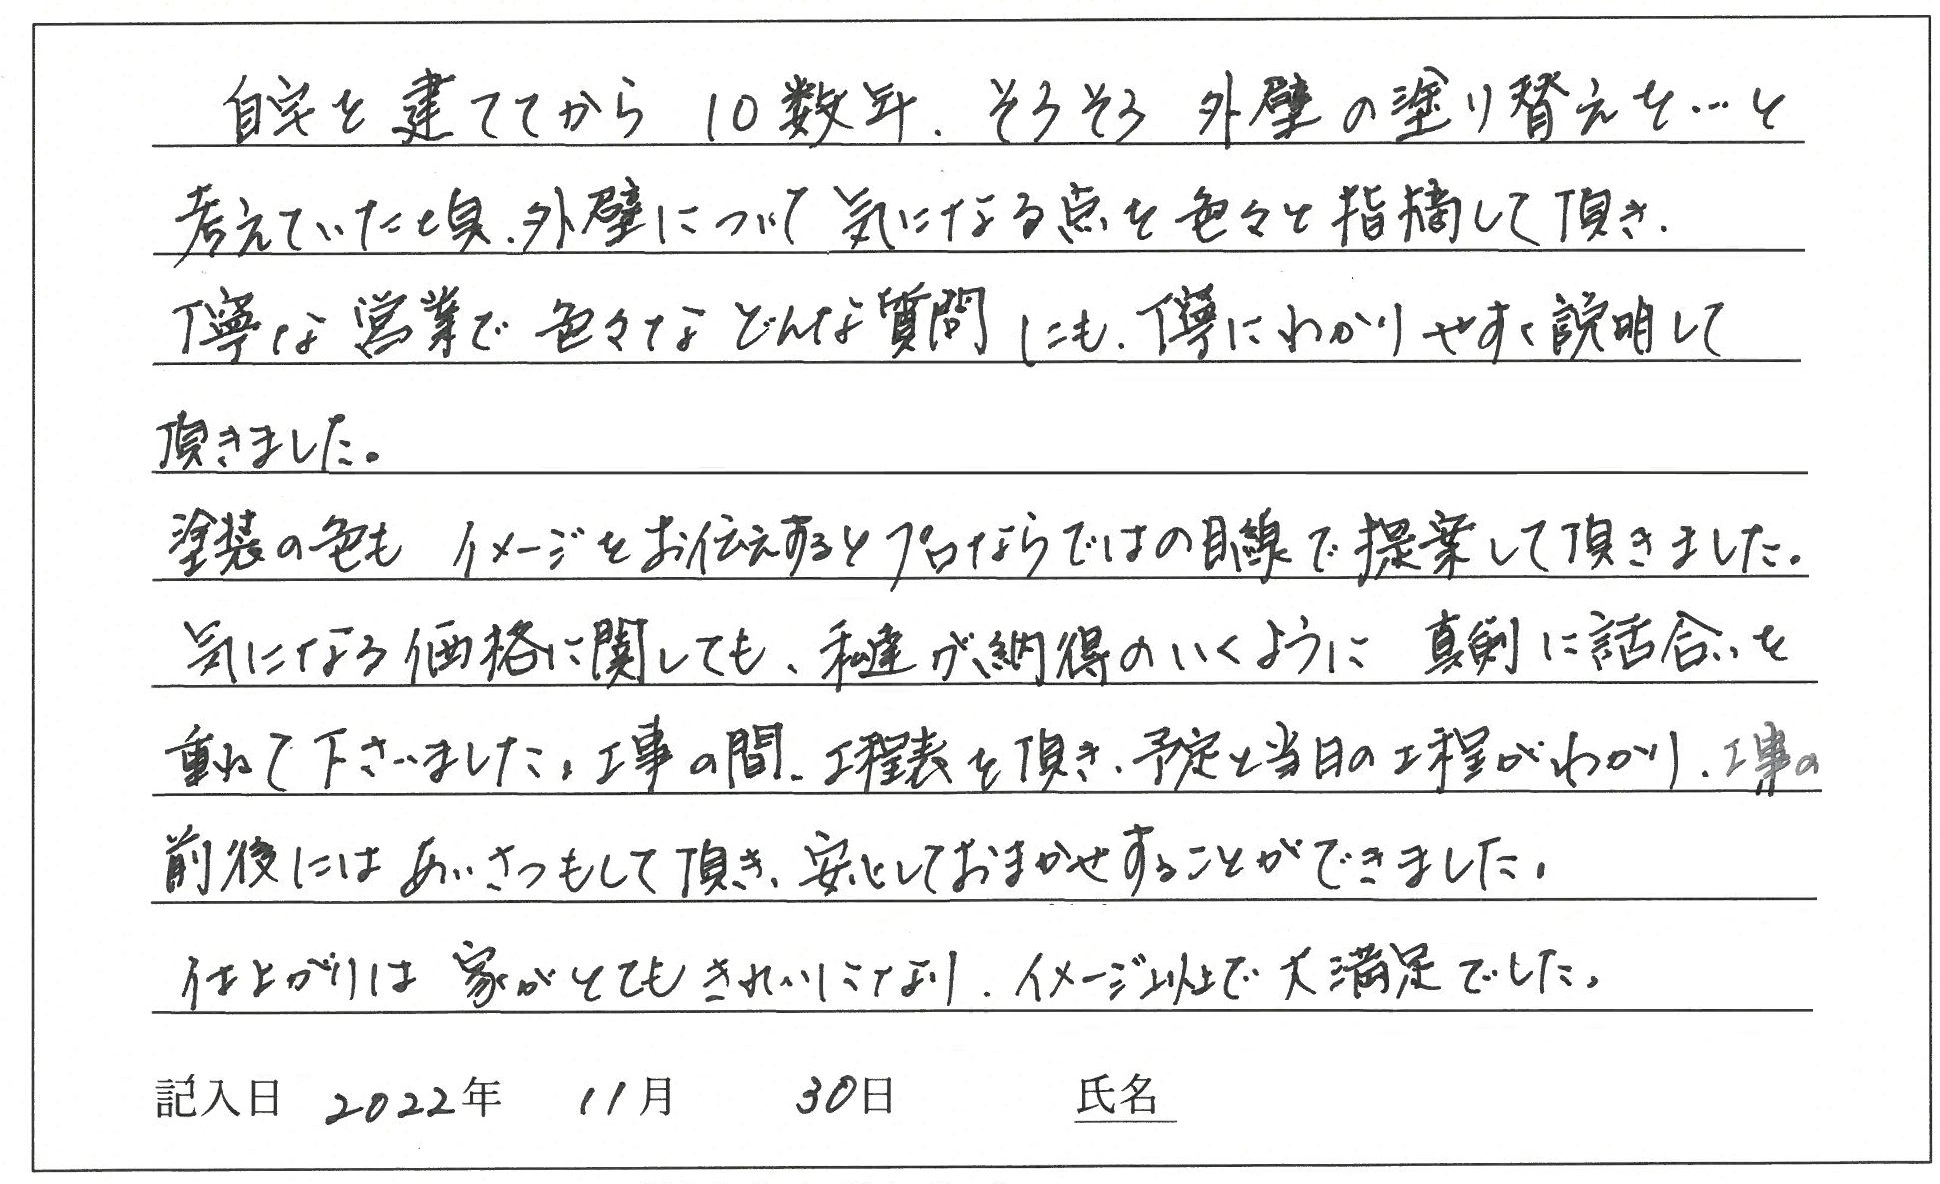 自宅を建ててから 10数年、そろそろ 外壁の塗り替えを…と
考えていた頃、外壁について気になる点を色々と指摘して頂き、
丁寧な営業で色々などんな質問にも、丁寧にわかりやすく説明して
頂きました。
塗装の色も イメージをお伝えするとプロならではの目線で提案して頂きました。
気になる価格に関しても、私達が納得のいくように 真剣に話合いを
重ねて下さいました。工事の間、工程表を頂き、予定と当日の工程がわかり、工事の
前後にはあいさつもして頂き、安心しておまかせすることができました。
仕上がりは 家がとてもきれいになり、イメージ以上で大満足でした。
記入日 2022年 11月 30日 氏名